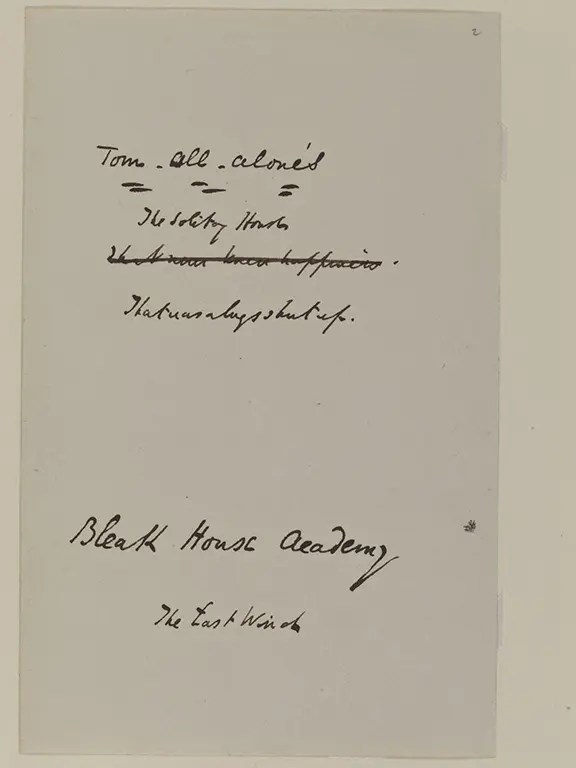 2
Tom-all-alone's
The Solitary House
That never knew happiness.
That was always shut up.
Bleak House Academy
The East Wind